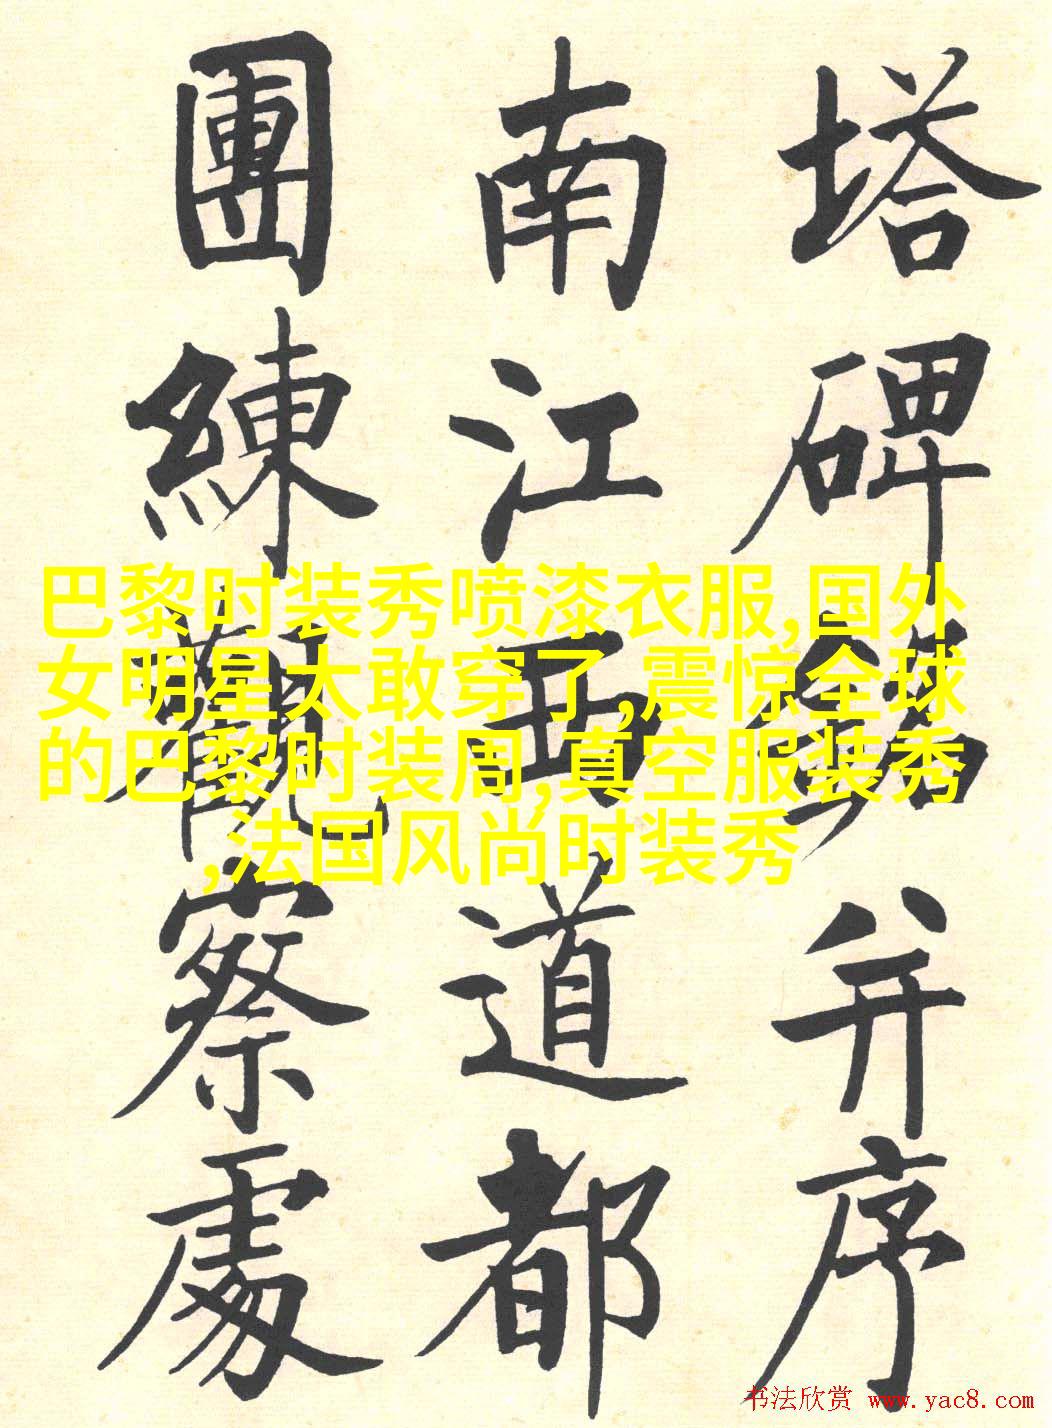 塔碑銘并序
南江西道都
團練觀察處
巴黎时装秀喷漆衣服,国外
女明星太敢穿了,震惊全球
的巴黎时装周,真空服装秀
,法国风尚时装秀
书法欣赏 www.yac8.com